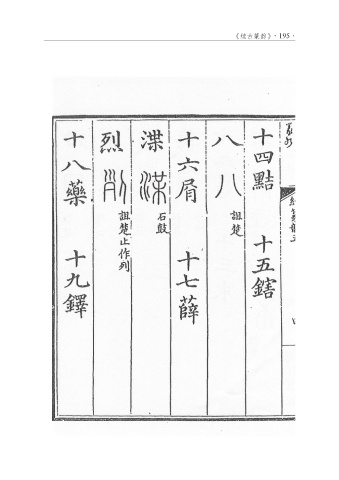 《续古篆韵》·195·
十四黠 十五鎋
八 八 詛楚
十六屑 十七薛
渫 渫 石鼓
烈 𠛱 詛楚止作列
十八藥 十九鐸